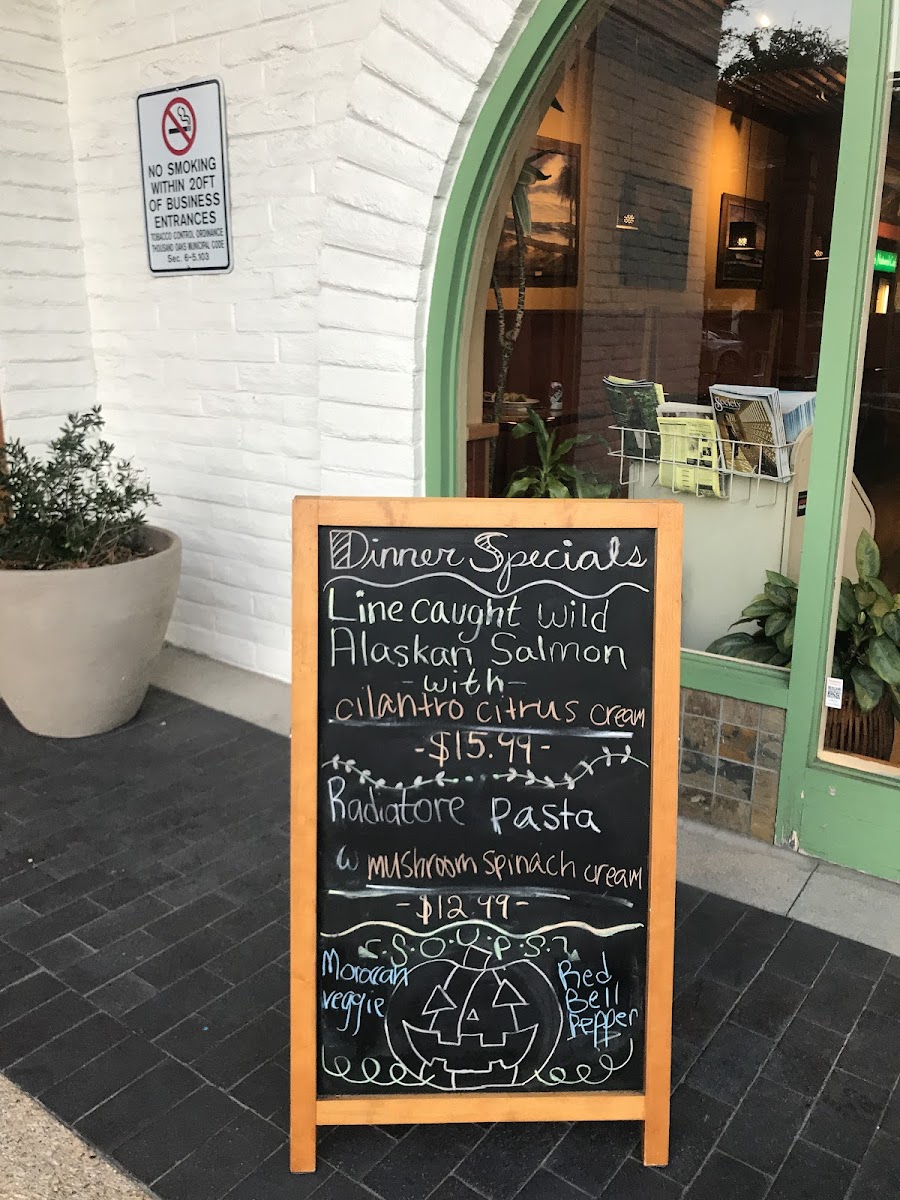 NO SMOKING
WITHIN 20FT
OF BUSINESS
ENTRANCES
TOBACCO CONTROL ORDINANCE
THOUSAND OAKS MUNICIPAL CODE
Sec. 6-5.103
Society
Dinner Specials
Line caught wild
Alaskan Salmon
-with-
cilantro citrus cream
-$15.99-
Radiatore pasta
w mushroom spinach cream
-$12.99-
S.O.U.P.S.
Moroccan
veggie
Red
Bell
pepper